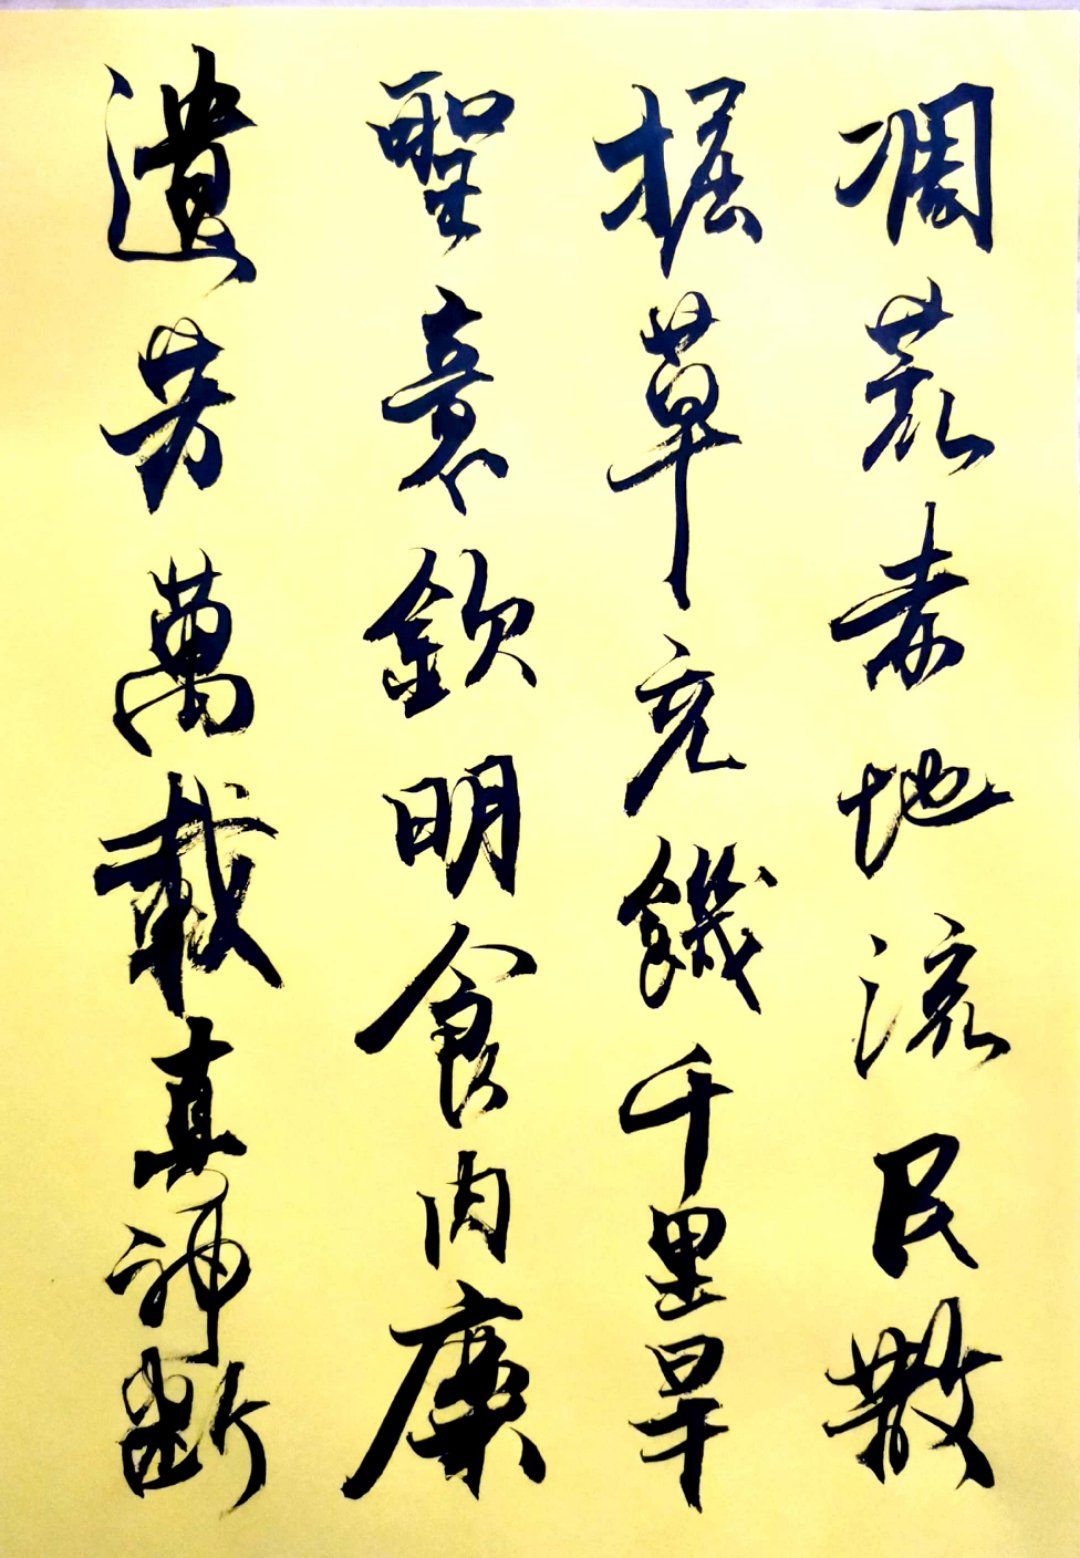 凋荒赤地流民散
掘草充饑千里旱
聖意欽明食肉糜
遺芳萬載真神斷